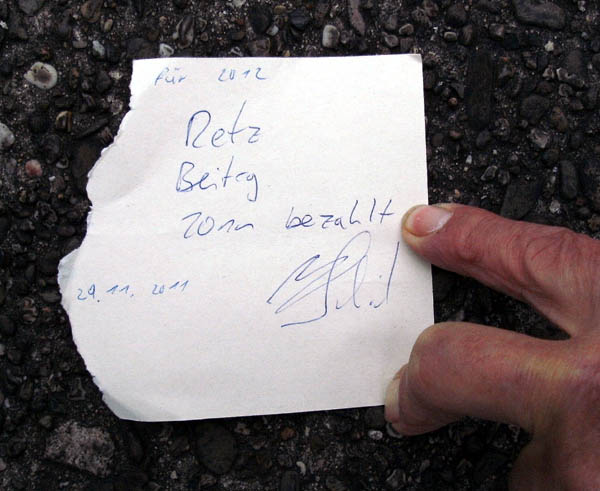 für 2012
Retz
Beitrag
bezahlt
29.11.2011